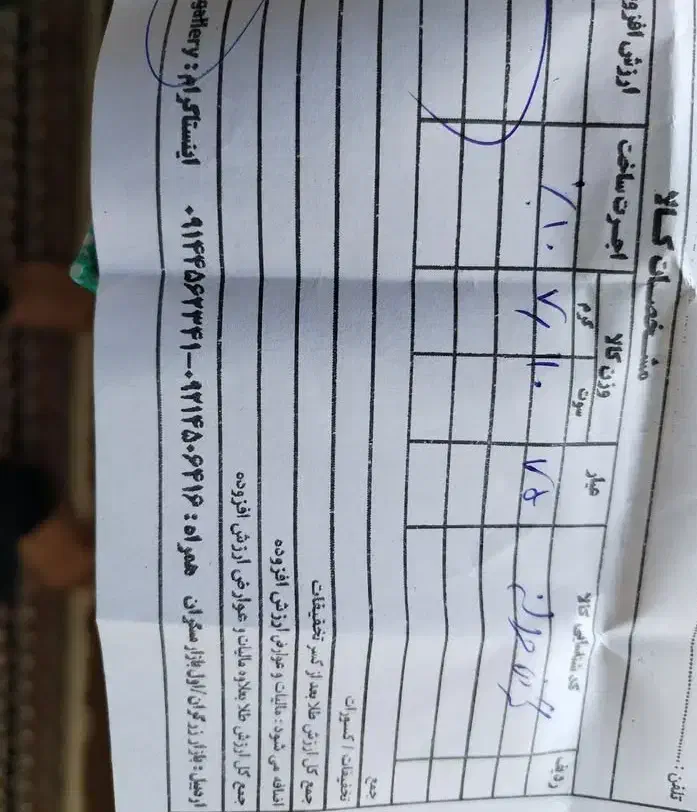 تلفن :
مشخصات کالا
ردیف کد شناسایی کالا عیار وزن کالا اجرت ساخت ارزش افزو
سوت گرم
۷۵ ۱۰ ۷/ ٪۱۰
جمع
تخفیفات / کسورات
جمع کل ارزش طلا بعد از کسر تخفیفات
اضافه می شود : مالیات و عوارض ارزش افزوده
جمع کل ارزش طلا بعلاوه مالیات و عوارض ارزش افزوده
اردبیل : بازار زرگران/اول بازار مسگران همراه : ۰۹۲۱۴۵۰۶۴۱۶-۰۹۱۴۴۵۶۲۳۴۱ اینستاگرام : gallery